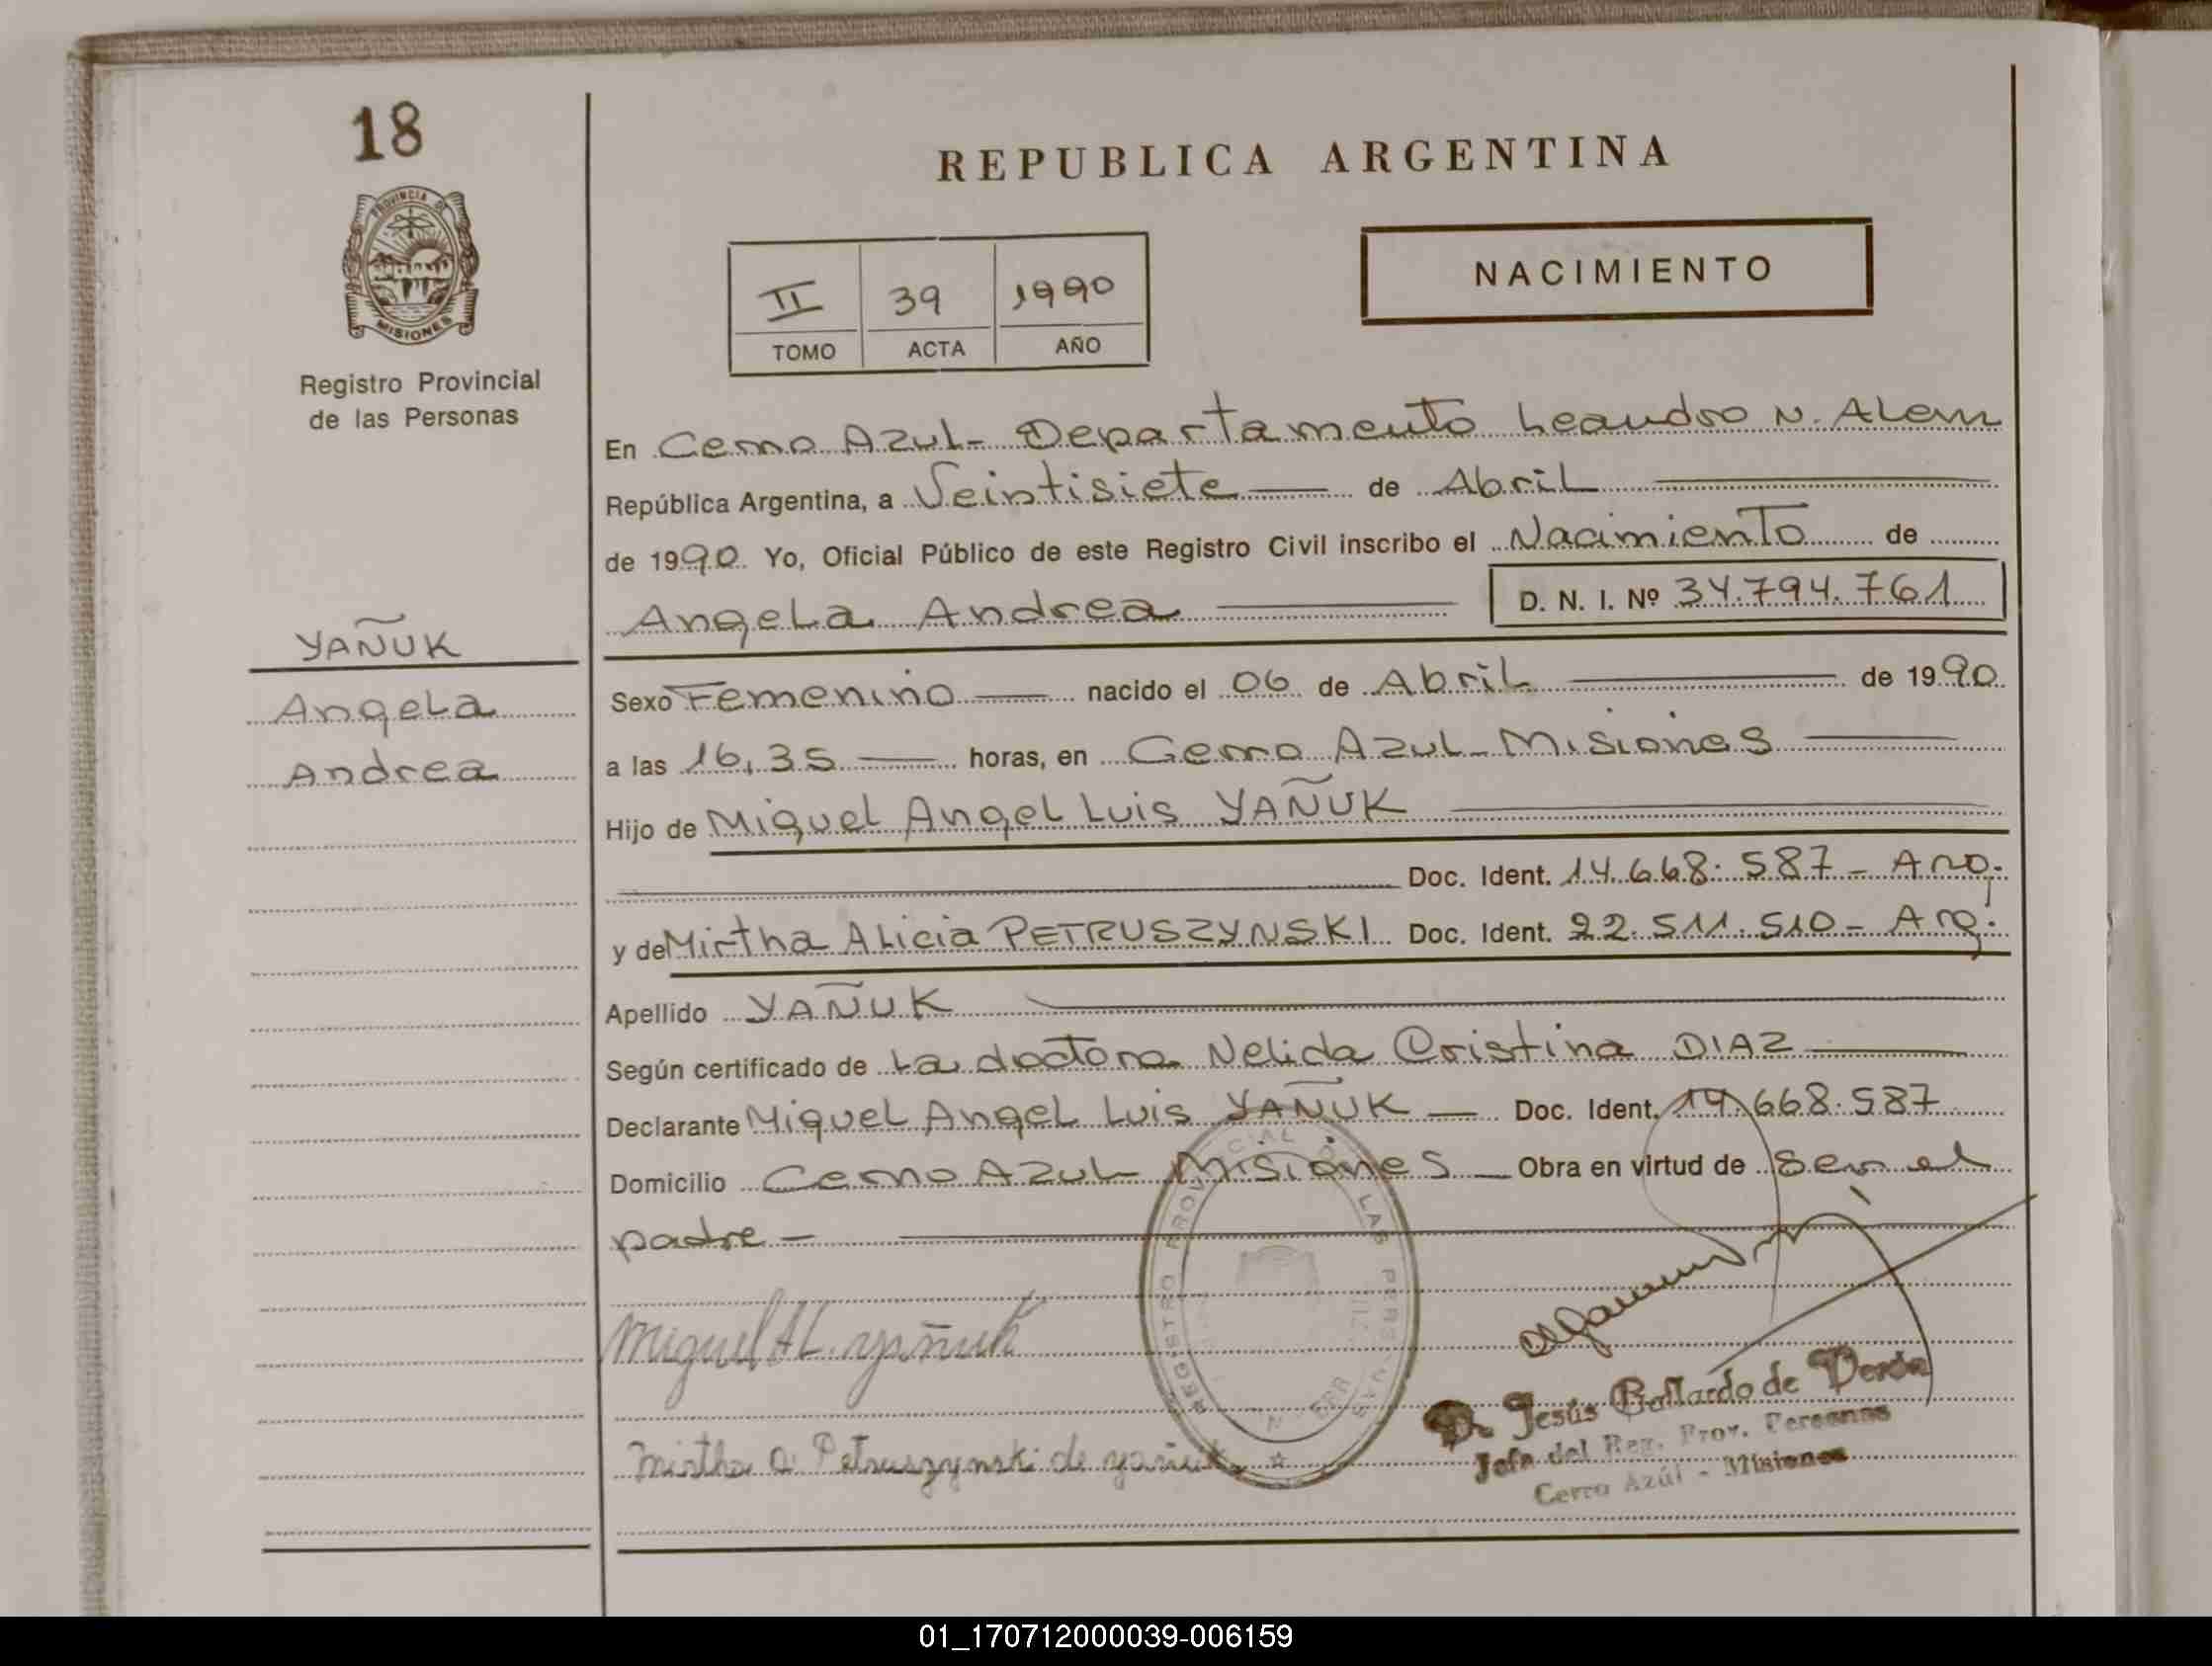 18
PROVINCIA D
MISIONES
Registro Provincial
de las Personas
REPUBLICA ARGENTINA
II 39 1990
TOMO ACTA AÑO
NACIMIENTO
En Cerro Azul - Departamento Leandro N. Alem
República Argentina, a Veintisiete de Abril
de 1990. Yo, Oficial Público de este Registro Civil inscribo el Nacimiento de
Angela Andrea D. N. I. Nº 34.794.761
YAÑUK
Angela
Andrea
Sexo Femenino nacido el 06 de Abril de 1990
a las 16,35 horas, en Cerro Azul - Misiones
Hijo de Miguel Angel Luis YAÑUK
Doc. Ident. 14.668.587 - Arg.
y de Mirtha Alicia PETRUSZYNSKI Doc. Ident. 22.511.510 - Arg.
Apellido YAÑUK
Según certificado de La doctora Nelida Cristina DIAZ
Declarante Miguel Angel Luis YAÑUK Doc. Ident. 14.668.587
Domicilio Cerro Azul - Misiones Obra en virtud de Ser el
padre -
Miguel A L. yañuk
Mirtha A Petruszynski de yañuk
REGISTRO PROVINCIAL LAS PERSONAS
Jesús Gallardo de
Jefa del Reg. Prov. Personas
Cerro Azúl - Misiones
01_170712000039-006159